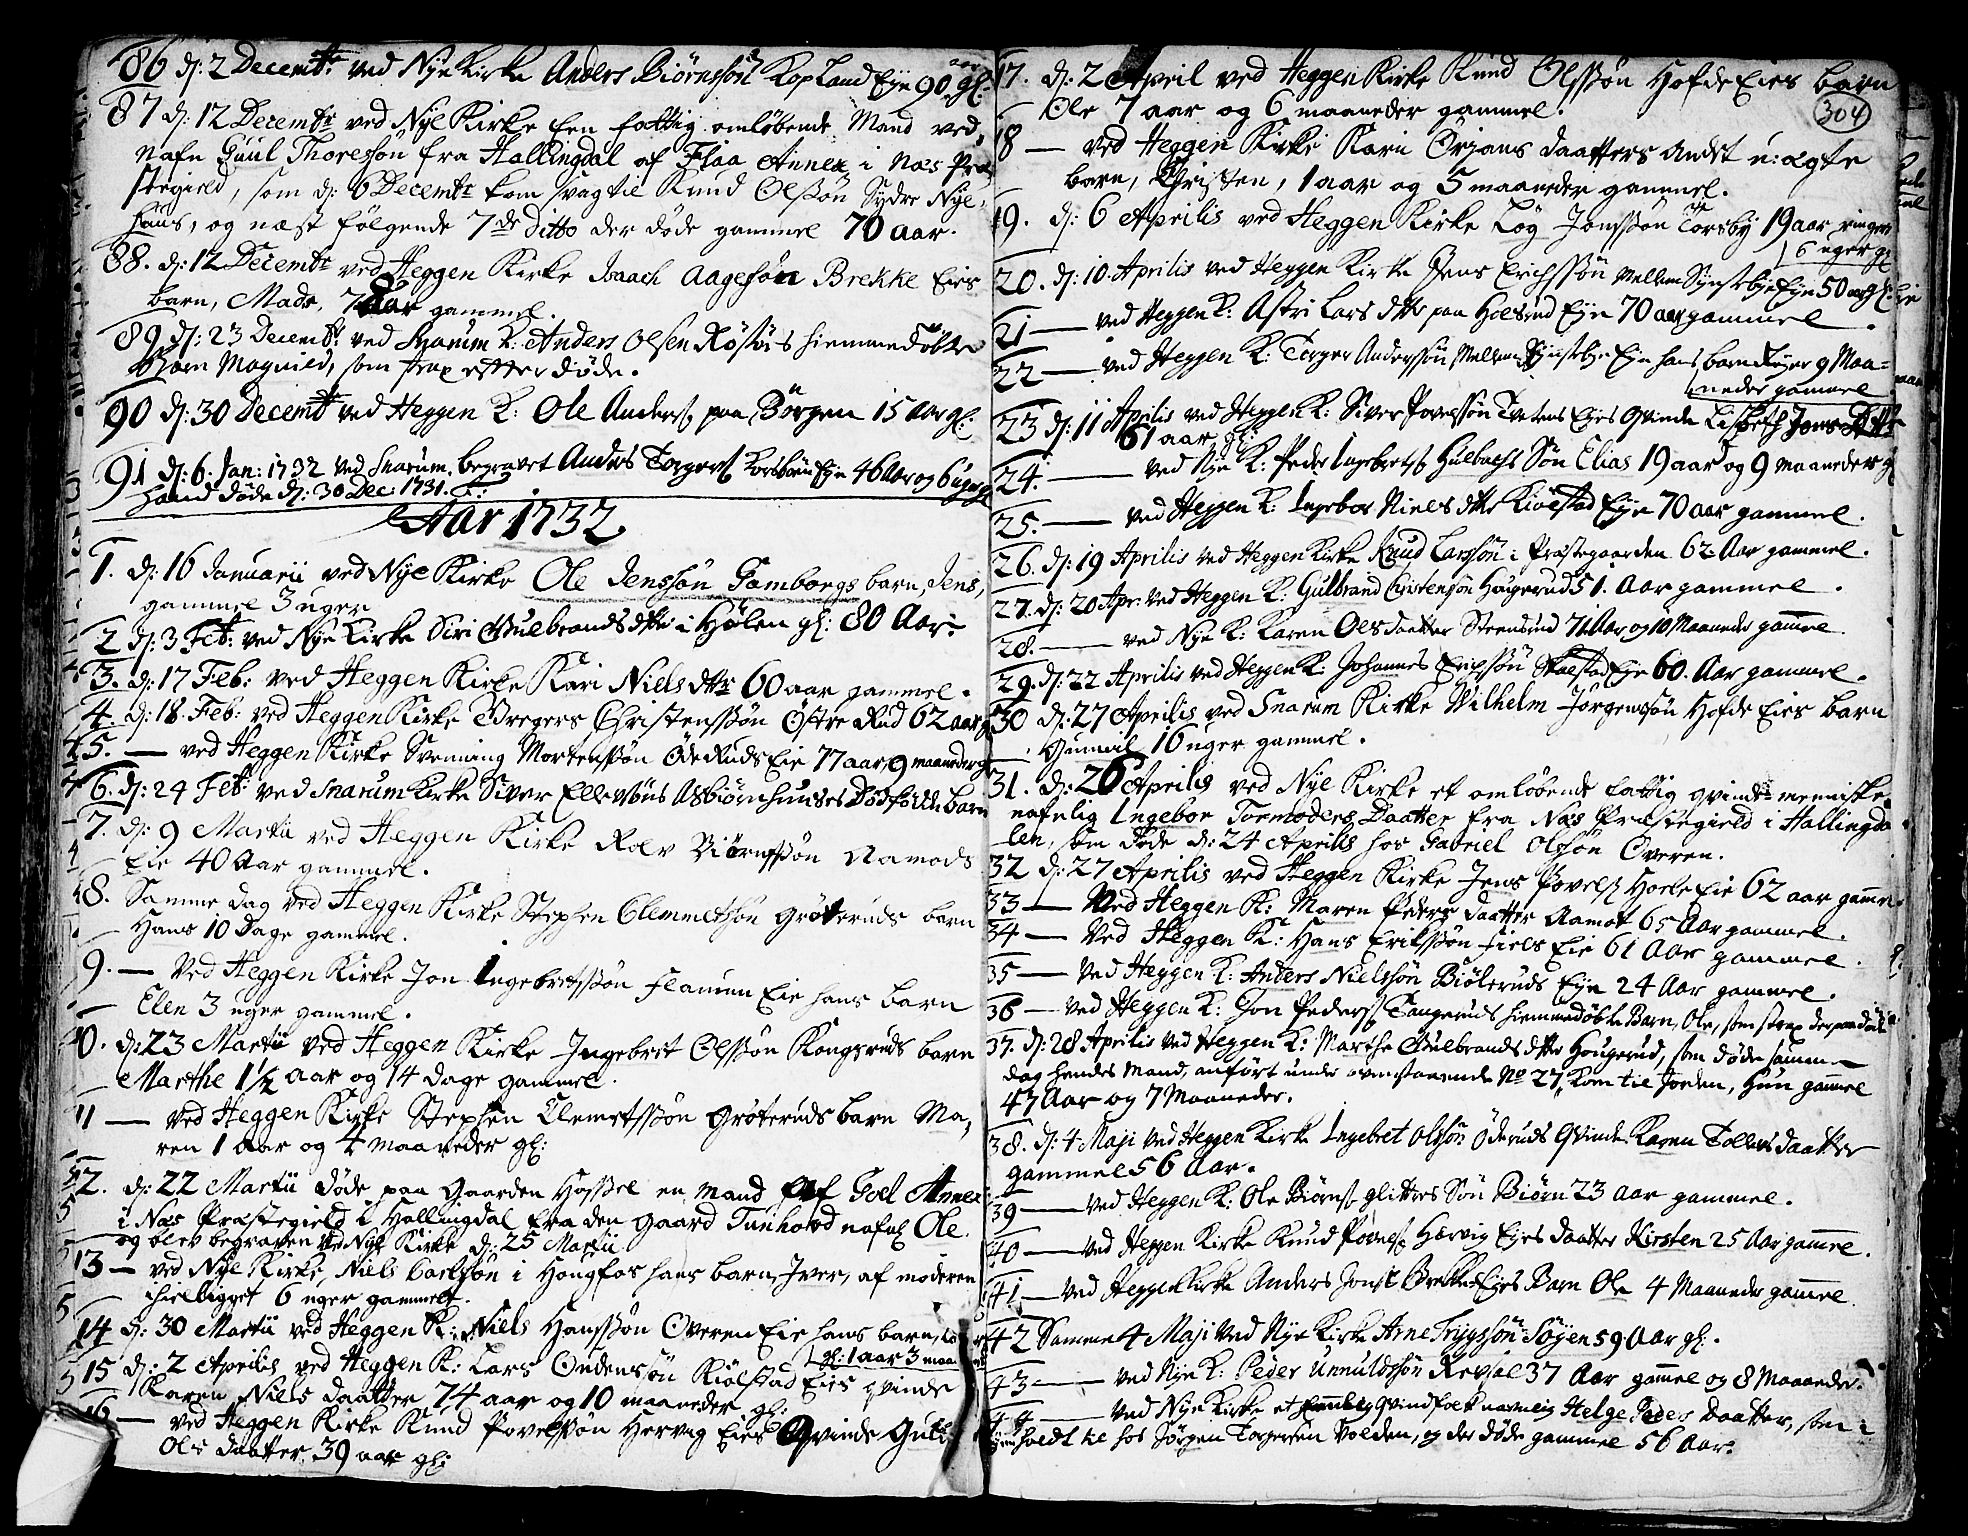 86 d: 2 Decembr ved Nye Kirke Anders Biørnssøn Kopland Eye 90 aar gl:
87 d: 12 Decembr ved Nye Kirke Een fattig omløbende Mand ved
Nafn Guul Thoresson fra Hallingdal af Flaa Annex i Næs Præ
stegield, som d: 6 Decembr kom svag til Knud Olssøn Sydre Nye,
huus, og næst følgende 7de Ditto der døde gammel 70 aar.
88. d: 12 Decembr ved Heggen Kirke Isaach Aagesøn Brekke Eies
barn, Mads, 7 Aar gammel.
89 d: 23 Decembr ved Snarum K: Anders Olsen Røstøs hiemmedøbte
Barn Magnild, som strax effter døde.
90 d: 30 Decembr ved Heggen K: Ole Anders: paa Børgen 15 Aar gl:
91 d: 6. Jan: 1732 ved Snarum begravet Anders Torgers: Eye 46 Aar og 6 uger
hand døde d: 30 Dec: 1731.
Aar 1732
1. d: 16 Januarii ved Nye Kirke Ole Jenssøn Gamborgs barn, Jens,
gammel 3 uger
2 d: 3 Feb: ved Nye Kirke Siri Gulbrands dttr i Hølen gl: 80 Aar.
3. d: 17 Feb: ved Heggen Kirke Kari Niels dttr 60 aar gammel.
4. d: 18. Feb: ved Heggen Kirke Bregers Christenssøn Østre Rud 62 aar g
5. — ved Heggen Kirke Svenning Mortenssøn Øde Ruds Eie 77 aar, 9 maaneder
6. d: 24 Feb: ved Snarum Kirke Siver Ellevsøns Asbiørnhuuses Dødfødde barn
7. d: 9 Martii ved Heggen Kirke Rolv Biørnssøn Aamods
Eie 40 Aar gammel.
8. Samme dag ved Heggen Kirke Stephen Clemmetsøn Grøteruds barn
Hans 10 Dage gammel.
9. — Ved Heggen Kirke Jon Ingebretssøn Flannum Eie hans barn
Elen 3 uger gammel.
10. d: 23 Martii ved Heggen Kirke Ingebret Olssøn Kongsruds barn
Marthe 1 1/2 aar og 14 dage gammel.
11 — ved Heggen Kirke Stephen Clemetssøn Grøteruds barn Ma,
ren 1 Aar og 4 maaneder gl:
12. d: 22 Martii døde paa Gaarden Hassel en Mand af Goel Annex
i Næs Præstegield i Hallingdal fra den Gaard Tunhovd nafnl: Ole.
og blev begraven ved Nye Kirke d: 25 Martii
13 — ved Nye Kirke, Niels Carlssøn i Hongfos hans barn, Iver, af moderen
ihielligget 6 uger gammelt.
14 d: 30 Martii ved Heggen K: Niels Hanssøn Overen Eie hans barn,
gl: 1 aar 3 maa
15 d: 2 Aprilis ved Heggen K: Lars Ondenssøn Kiølstad Eies qvinde
Karen Niels daatter 74 aar og 10 maaneder gl:
16 — ved Heggen Kirke Knud Povelssøn Hervig Eies Qvinde Guli
Ols daatter 39 aar gl:
17. d: 2 April ved Heggen Kirke Knud Olssøn Hofde Eies barn
304
Ole 7 aar og 6 maaneder gammel.
18 — ved Heggen Kirke Kari Ørjans daatters andet u:ægte
barn, Christen, 1 aar og 5 maaneder gammel.
19. d: 6 Aprilis ved Heggen Kirke Loy Jonssøn Torsby 19 aar ringer
6 uger gl
20. d: 10. Aprilis ved Heggen Kirke Jens Erichssøn Mellem Synstebye Eye 50 aar gl:
21 — ved Heggen K: Astri Lars dttr paa Holerud Eye 70 aar gammel.
22 — ved Heggen K: Torger Anderssøn Mellem Synstebye Eye hans barn 9 Maa=
neder gammel
23 d: 11 Aprilis ved Heggen K: Siver Povelssøn Tvetens Eyes Qvinde Lisbeth Jons Dttr
61 aar gl:
24. — ved Nye K: Peder Ingebrets: Hulbachs Søn Elias 19 aar og 9 maaneder g
25. — ved Heggen K: Ingebor Niels dttr Kiølstad Eye 70 aar gammel.
26. d: 19 Aprilis ved Heggen Kirke Knud Larssøn i Præstegaarden 62 Aar gammel.
27. d: 20 Apr: ved Heggen K: Gulbrand Christensøn Haugerud 51. Aar gammel.
28. — ved Nye K: Karen Ols daatter Steensrud 71 Aar og 10 Maaneder gammel
29. d: 22 Aprilis ved Heggen K: Johannes Ericssøn Eye 60. Aar gammel.
30 d: 27 Aprilis ved Snarum Kirke Wilhelm Jørgenssøn Hofde Eies barn
Gunnil 16 uger gammel.
31. d: 26 Aprilis ved Nye Kirke et omløbende fattig qvinde-menniske
nafnlig Ingebor Tormoders Daatter fra Næs Præstegield i Hallingda
len, som døde d: 24 Aprilis hos Gabriel Olssøn Overen.
32 d: 27 Aprilis ved Heggen Kirke Jens Povels: Hoele Eie 62 aar gammel
33 — Ved Heggen K: Maren Peders daatter Aamot 65 Aar gammel.
34 — Ved Heggen K: Hans Erikssøn Fiels Eie 61 Aar gammel.
35 — Ved Heggen K: Anders Nielssøn Biøleruds Eye 24 Aar gammel.
36 — ved Heggen K: Jon Peders: Tangeruds hiemmedøbte Barn, Ole, som strax derpaa døde
37. d: 28 Aprilis ved Heggen K: Marthe Gulbrands dttr Hougerud, som døde samme
dag hendes Mand, anført under ovenstaaende No 27, kom til Jorden, hun gammel
47 Aar og 7 Maaneder.
38. d: 4 Maji ved Heggen Kirke Ingebret Olssøn Øderuds Qvinde Karen Tollevs daatter
gammel 56 Aar.
39 — ved Heggen K: Ole Biørns: Glittres Søn Biørn 23 Aar gammel.
40 — ved Heggen Kirke Knud Povels: Hærvig Eyes daatter Kirsten 25 Aar gammel.
41 — ved Heggen Kirke Anders Jons: Brekke Eyes Barn Ole 4 Maaneder gammel
42 Samme 4 Maji ved Nye Kirke Arne Trygssøn Søyen 59 Aar gl:
43 — ved Nye K: Peder Unnuldssøn Revsal 37 Aar gammel og 8 Maaneder.
44 — Ved Nye Kirke et qvindfolk navnlig Helge Peders Daatter, som
hos Jørgen Torgersen Volden, og der døde gammel 56 Aar.